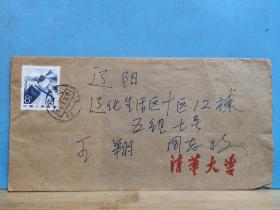 辽阳
辽化生活区十区12栋
五组七号
王翔 同志收
清华大学
8
中国人民邮政